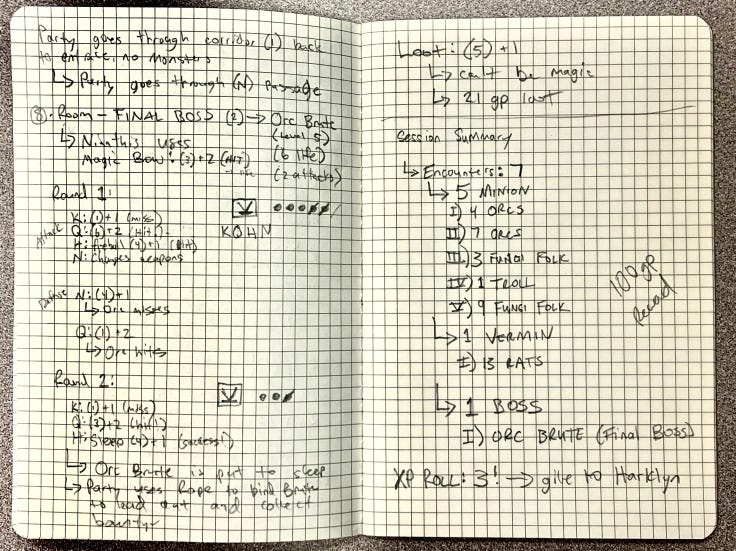 Party goes through corridor (1) back
to entrace, no monsters
↳ Party goes through (N) passage
8. Room - FINAL BOSS (2) → Orc Brute
(Level 5)
(6 life)
(2 attacks)
↳ Ninthis uses
Magic Bow: (3)+2 (HIT)
Round 1:
Attack
K: (1)+1 (miss)
Q: (6)+2 (Hit!)
H: fireball (4)+1 (Hit)
N: changes weapons
KQHN
Defense
N: (4)+1
↳ Orc misses
Q: (1)+2
↳ Orc hits
Round 2:
K: (1)+1 (miss)
Q: (3)+2 (hit!)
H: Sleep (4)+1 (success!)
↳ Orc Brute is put to sleep
↳ Party uses Rope to bind Brute
to lead out and collect
bounty
Loot: (5)+1
↳ can't be magic
↳ 21 gp loot
Session Summary
↳ Encounters: 7
↳ 5 MINION
I) 4 ORCS
II) 7 ORCS
III) 3 FUNGI FOLK
IV) 1 TROLL
V) 9 FUNGI FOLK
100 gp
Reward
↳ 1 VERMIN
I) 13 RATS
↳ 1 BOSS
I) ORC BRUTE (Final BOSS)
XP ROLL: 3! → give to Harklyn